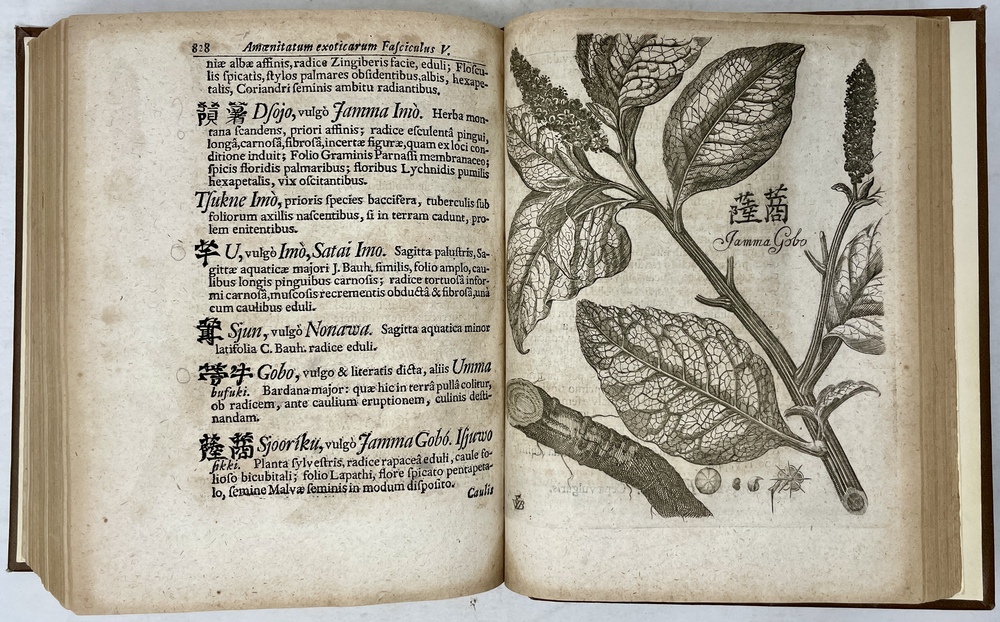 828 Amœnitatum exoticarum Fasciculus V.
niæ albæ affinis, radice Zingiberis facie, eduli; Floscu-
lis spicatis, stylos palmares obsidentibus, albis, hexape-
talis, Coriandri seminis ambitu radiantibus.
薯 Dſojo, vulgò Jamma Imò. Herba mon-
tana ſcandens, priori affinis; radice eſculentâ pingui,
longâ, carnoſâ, fibroſâ, incertæ figuræ, quam ex loci con-
ditione induit; Folio Graminis Parnaſſi membranaceo;
ſpicis floridis palmaribus; floribus Lychnidis pumilis
hexapetalis, vix oſcitantibus.
Tſukne Imò, prioris ſpecies baccifera, tuberculis ſub
foliorum axillis naſcentibus, ſi in terram cadunt, pro-
lem enitentibus.
芋 U, vulgò Imò, Satai Imo. Sagitta paluſtris, Sa-
gittæ aquaticæ majori J. Bauh. ſimilis, folio amplo, cau-
libus longis pinguibus carnoſis; radice tortuoſâ infor-
mi carnoſâ, muſcoſis recrementis obductâ & fibroſâ, unà
cum caulibus eduli.
Sjun, vulgò Nonawa. Sagitta aquatica minor
latifolia C. Bauh. radice eduli.
牛 Gobo, vulgo & literatis dicta, aliis Umma
bufuki. Bardana major: quæ hic in terrâ pullâ colitur,
ob radicem, ante caulium eruptionem, culinis deſti-
nandam.
Sjooriku, vulgò Jamma Gobó. Iſjuwo
ſikki. Planta ſylveſtris, radice rapaceâ eduli, caule fo-
lioſo bicubitali; folio Lapathi, flore ſpicato pentapeta-
lo, ſemine Malvæ ſeminis in modum diſpoſito.
Caulis
Jamma Gobo